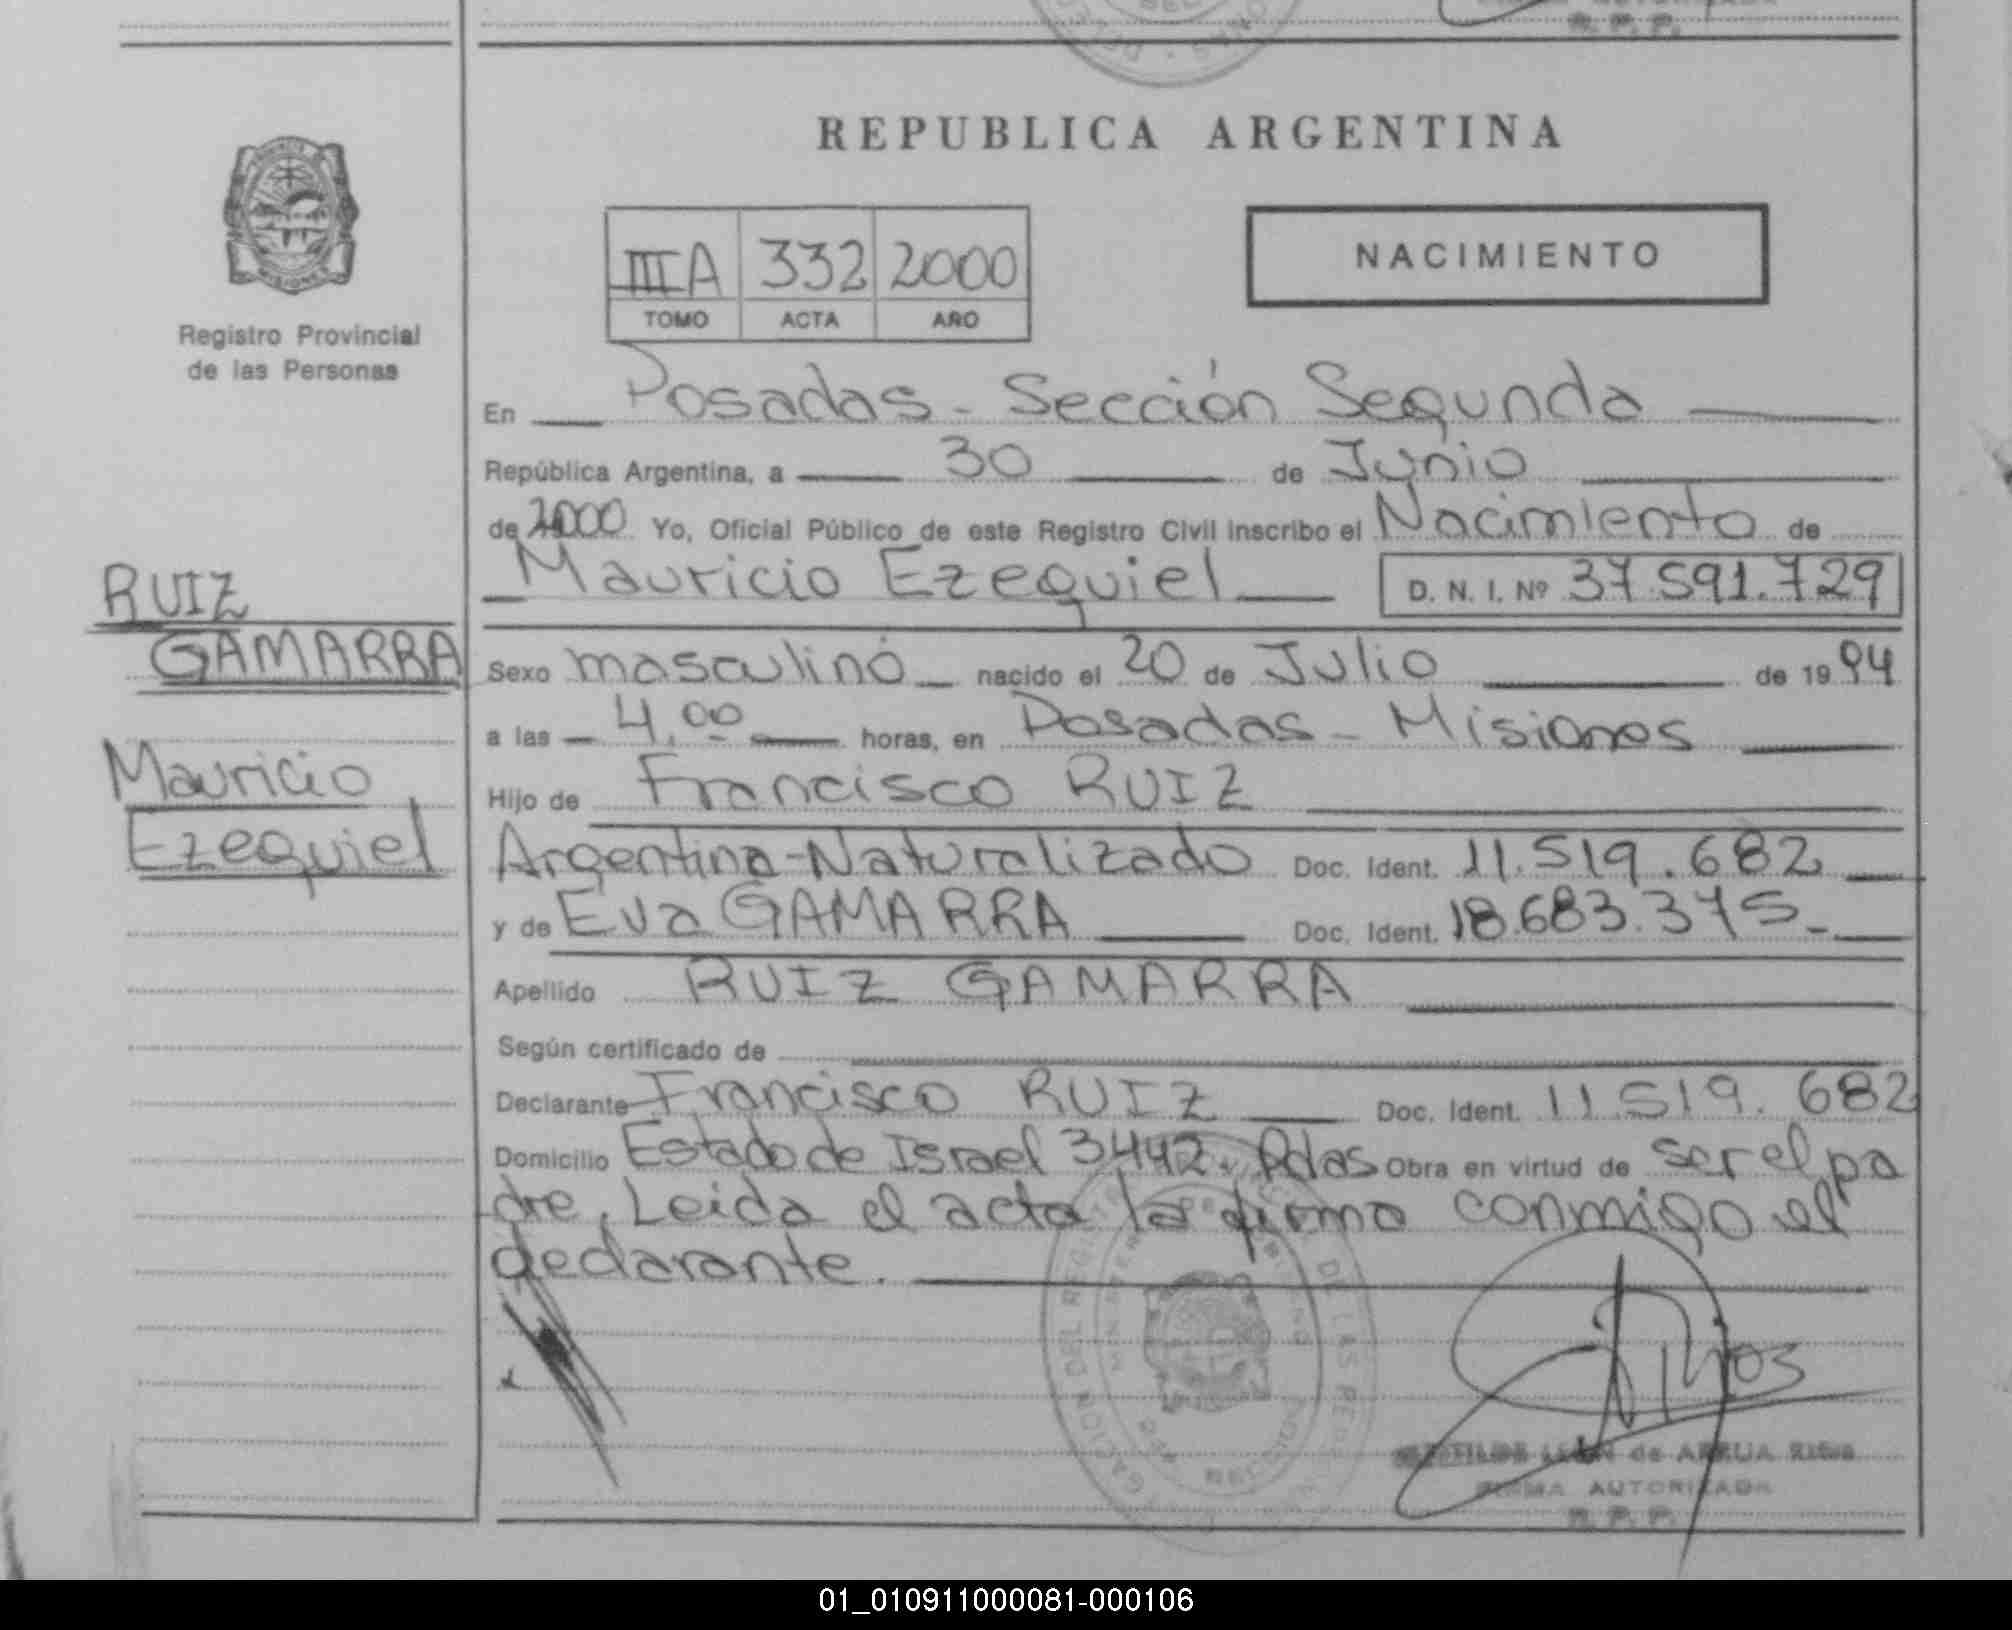 R. P. P.
REPUBLICA ARGENTINA
IIIA 332 2000
TOMO ACTA AÑO
NACIMIENTO
Registro Provincial
de las Personas
En Posadas - Sección Segunda
República Argentina, a 30 de Junio
de 2000 Yo, Oficial Público de este Registro Civil inscribo el Nacimiento de
Mauricio Ezequiel D. N. I. Nº 37.591.729
RUIZ
GAMARRA
Mauricio
Ezequiel
Sexo masculino nacido el 20 de Julio de 1994
a las 4,00 horas, en Posadas - Misiones
Hijo de Francisco RUIZ
Argentina-Naturalizado Doc. Ident. 11.519.682
y de Eva GAMARRA Doc. Ident. 18.683.375-
Apellido RUIZ GAMARRA
Según certificado de
Declarante Francisco RUIZ Doc. Ident. 11.519.682
Domicilio Estado de Israel 3442. Pdas Obra en virtud de ser el pa
dre. Leida el acta la firma conmigo el
declarante.
x
LEON de ARRUA
FIRMA AUTORIZADA
R. P. P.
01_010911000081-000106